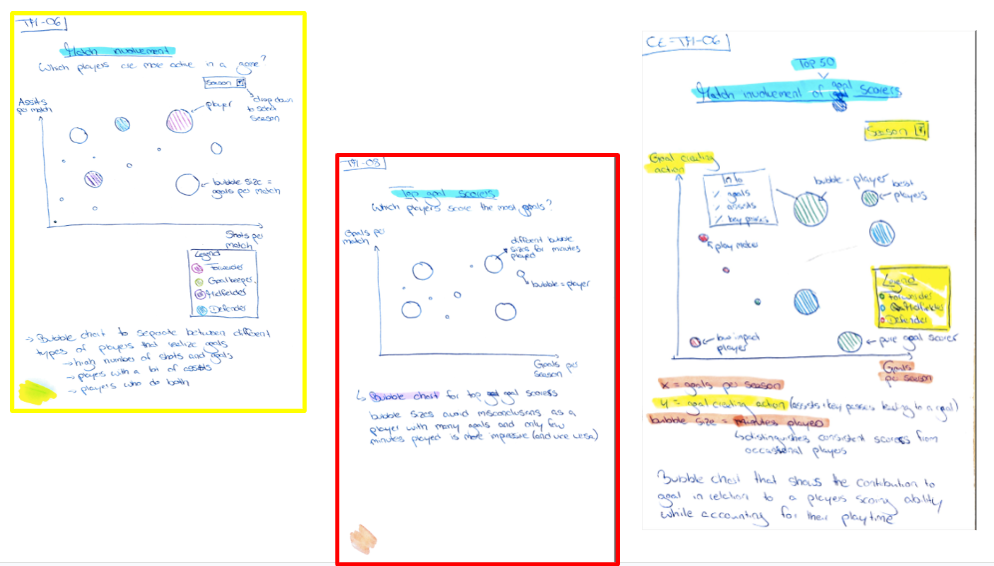 TH-06
Match involvement
Which players are more active in a game?
Season
Assists
per match
player
drop down
to select
season
bubble size =
goals per match
Shots per
match
Legend
Forwarder
Goalkeeper
Midfielder
Defender
→ Bubble chart to separate between different
types of players that realize goals
→ high number of shots and goals
→ players with a lot of assists
→ players who do both
TH-03
Top goal scorers
Which players score the most goals?
Goals per
match
different bubble
sizes for minutes
played
bubble = player
Goals per
Season
Bubble chart for top goal scorers
bubble sizes avoid misconclusions as a
player with many goals and only few
minutes played is more impressive (and vice versa)
CE-TH-06
Top 50
Match involvement of goal scorers
Season
Goal creating
action
Info
goals
assists
key passes
bubble = player
best
players
play maker
Legend
Forwarder
Midfielder
Defender
low impact
player
pure goal scorer
Goals
per season
x = goals per season
y = goal creating action (assists + key passes leading to a goal)
bubble size = minutes played
distinguishes consistent scorers from
occasional players
Bubble chart that shows the contribution to
goal in relation to a players scoring ability
while accounting for their playtime